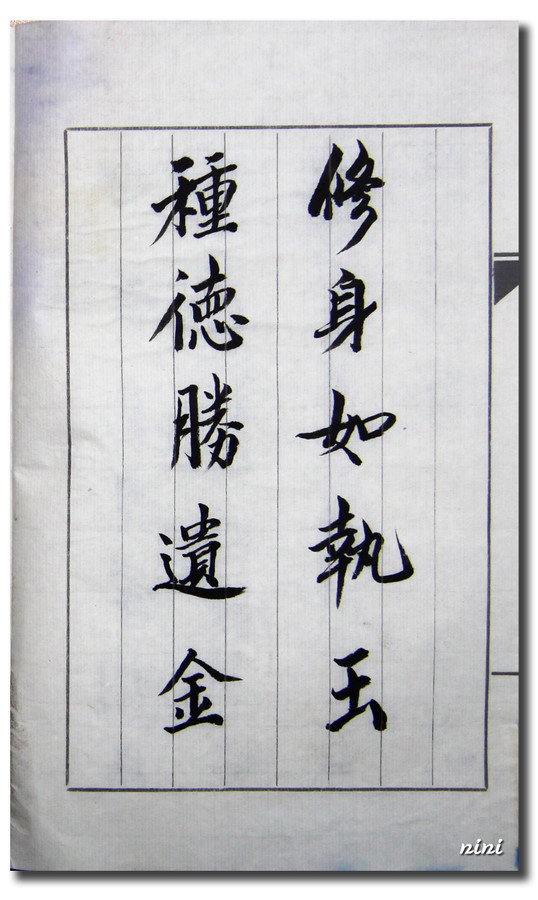 修身如執玉
種徳勝遺金
nini